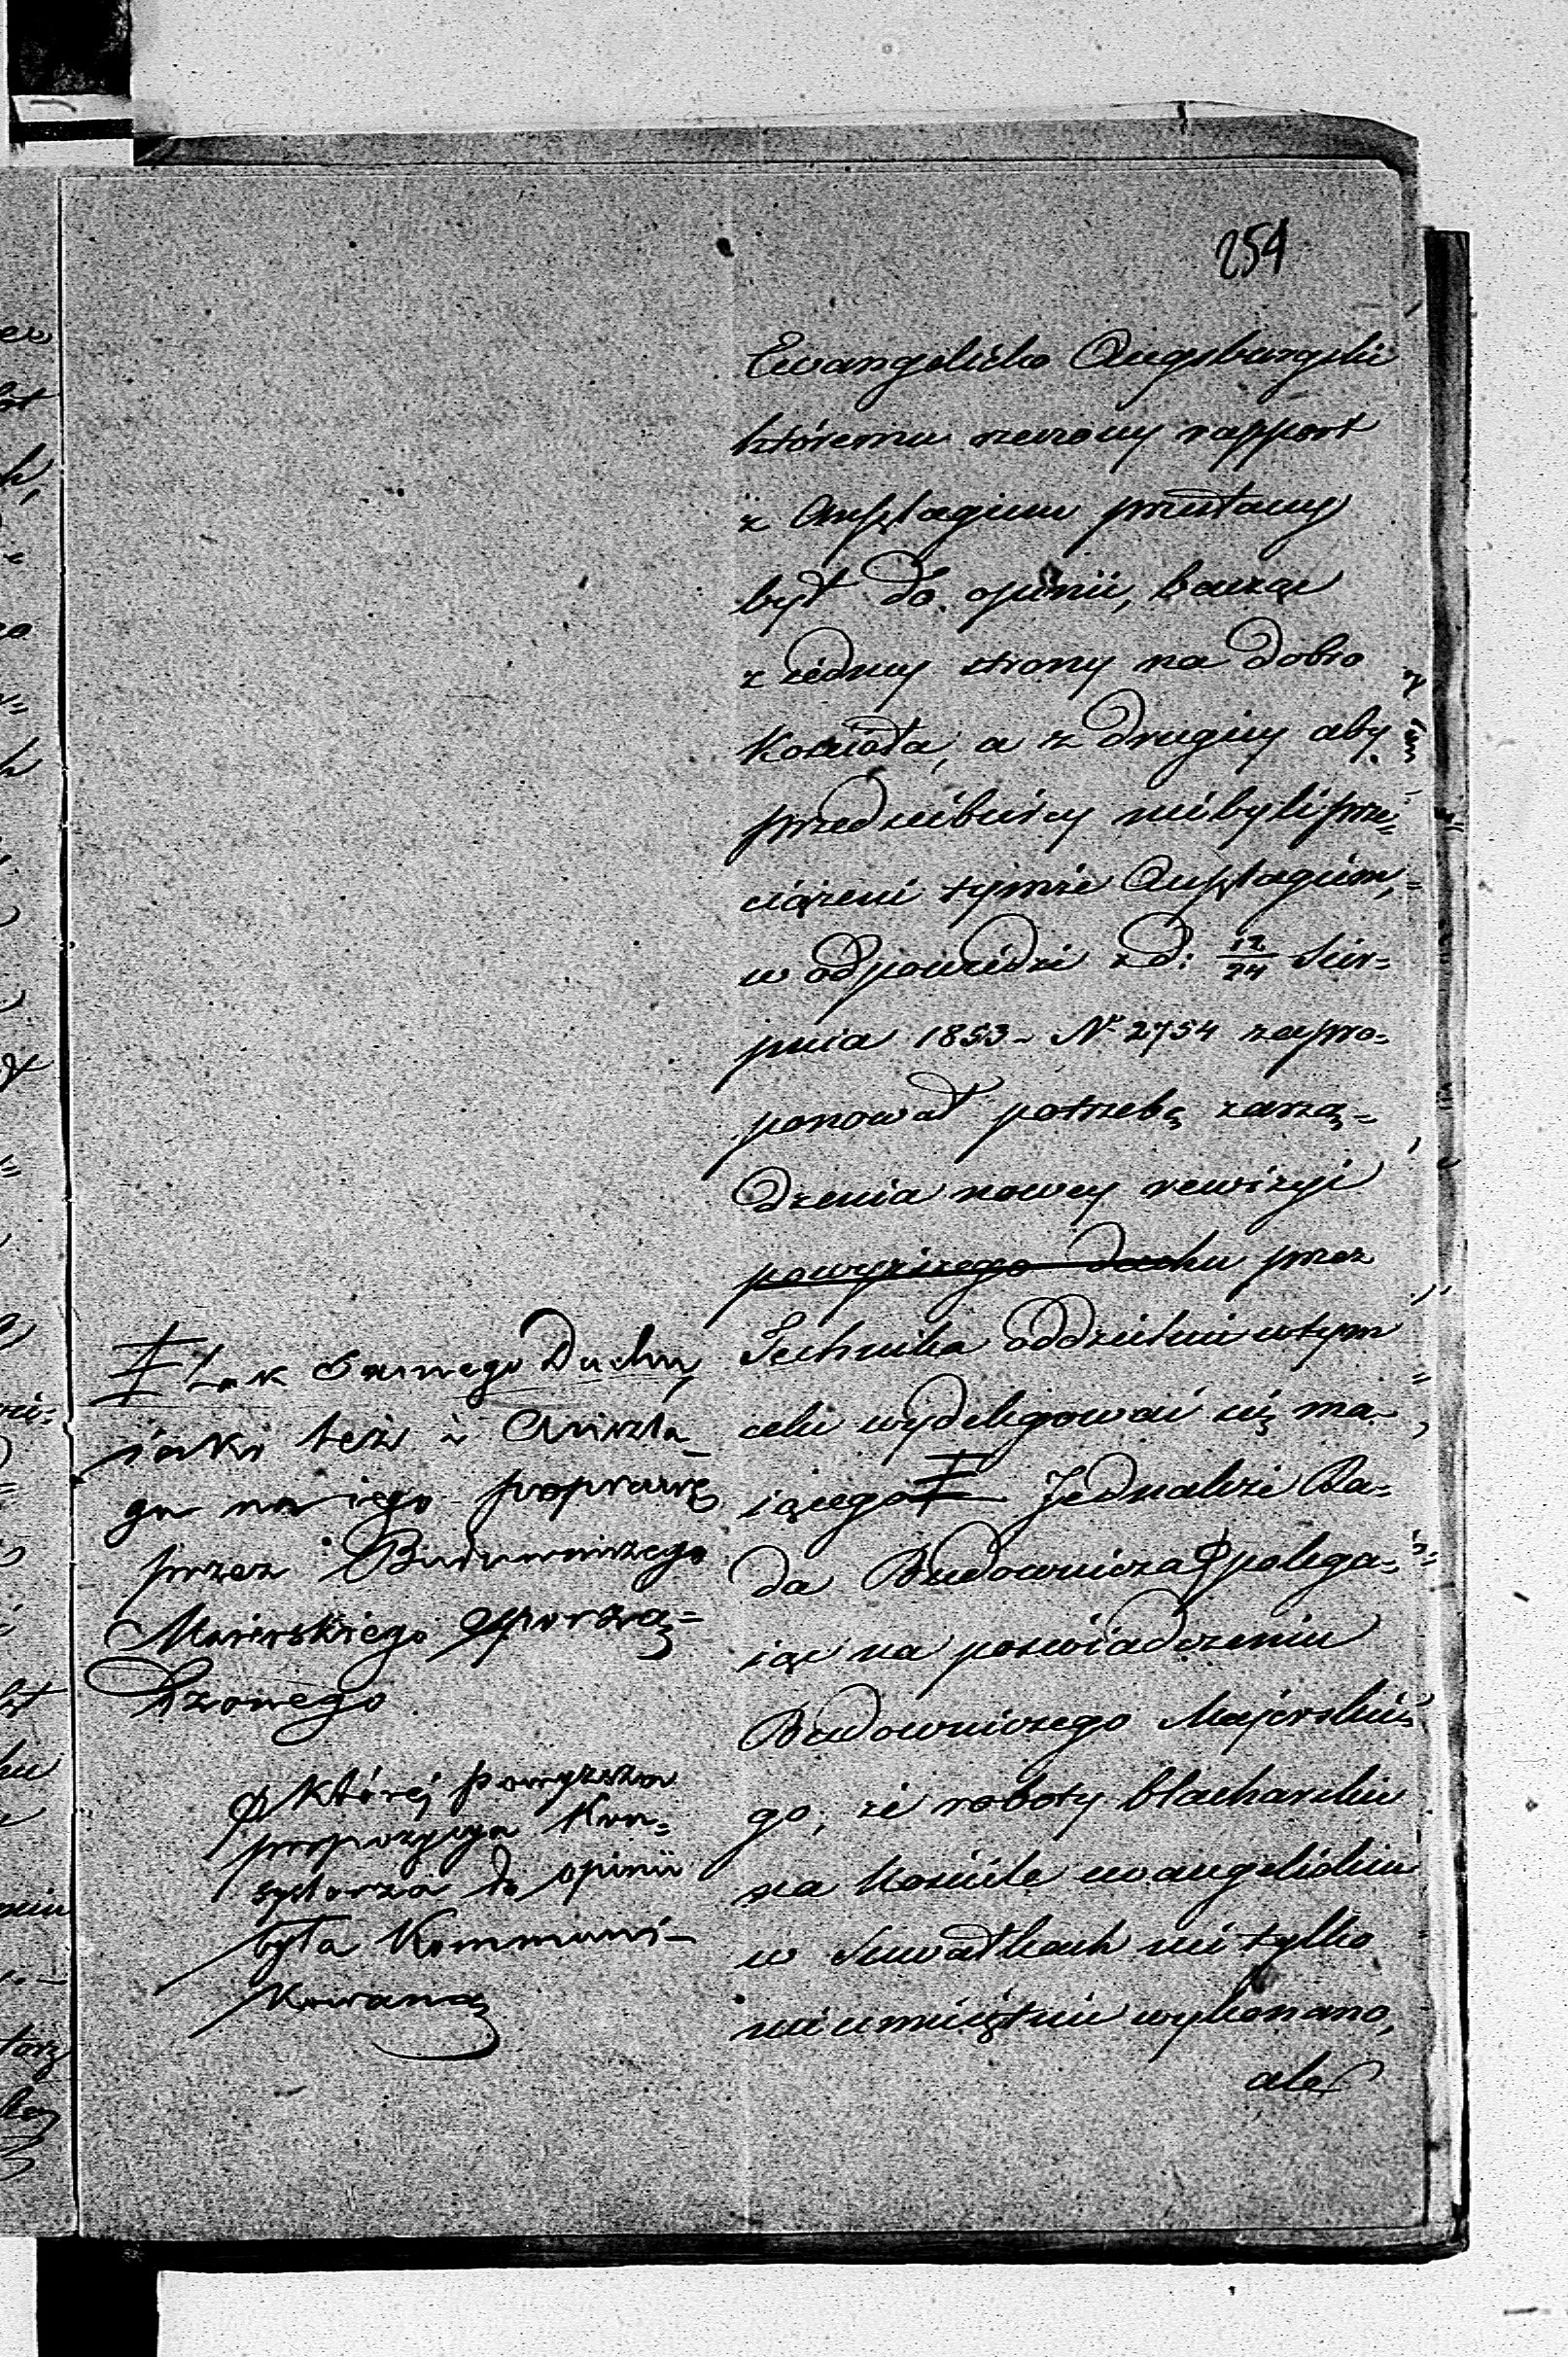 254
Ewangelicko Augsburgski
któremu rzeczony rapport
z Anszlagiem przesłany
był do opinii, bacząc
z iedney strony na dobro
Kościoła, a z drugiey aby
przedsiębiercy niebyli prze-
ciążeni tymże Anszlagiem,
w odpowiedzi z d: 12/24 Sier-
pnia 1853 - No 2754 zapro-
ponował potrzebę zarzą-
dzenia nowey rewizyi
powyższego dachu przez
Technika oddzielnie w tym
celu wydelegować się ma-
iącego Jednakże Ra-
da Budownicza polega-
iąc na poświadczeniu
Budowniczego Majerskie-
go, że roboty blacharskie
na kościele ewangelickim
w Suwałkach nie tylko
nieumieiętnie wykonano,
ale
tak samego Dachu
iako też i Anszla-
gu na iego poprawę
przez Budowniczego
Majerskiego sporzą-
dzonego
której powyższa
propozycya Kon-
systorza do opinii
była Kommuni-
kowaną